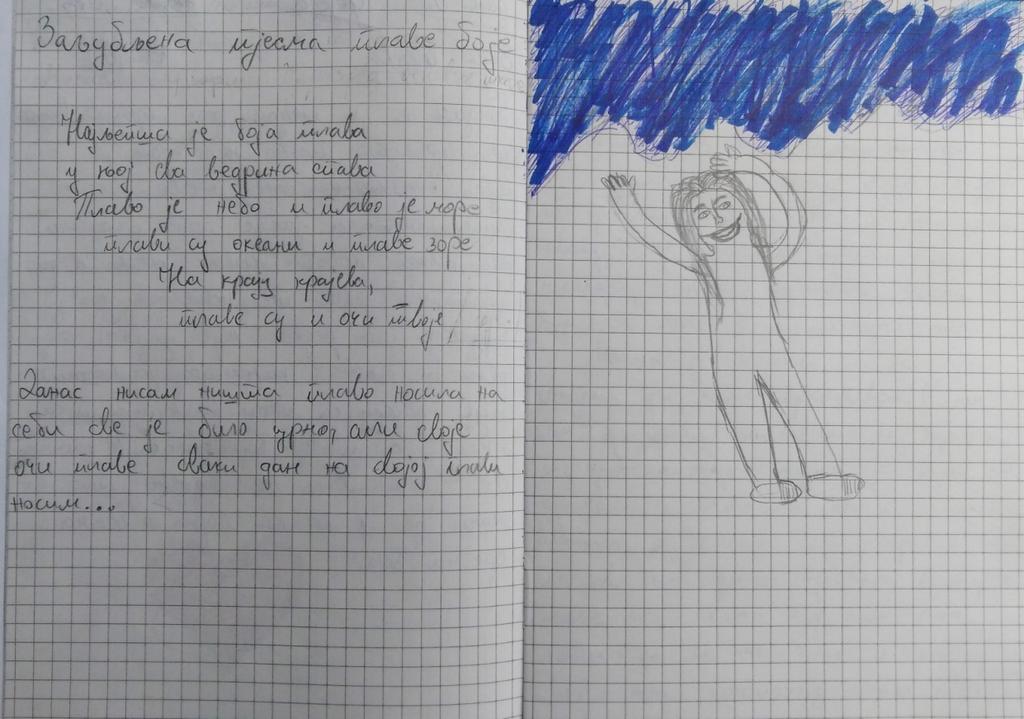 Заљубљена пјесма плаве боје
Најљепша је боја плава
у њој сва ведрина спава
Плаво је небо и плаво је море
плави су океани и плаве зоре
На крају крајева,
плаве су и очи твоје,
Данас нисам ништа плаво носила на
себи све је било црно, али своје
очи плаве сваки дан на својој глави
носим...